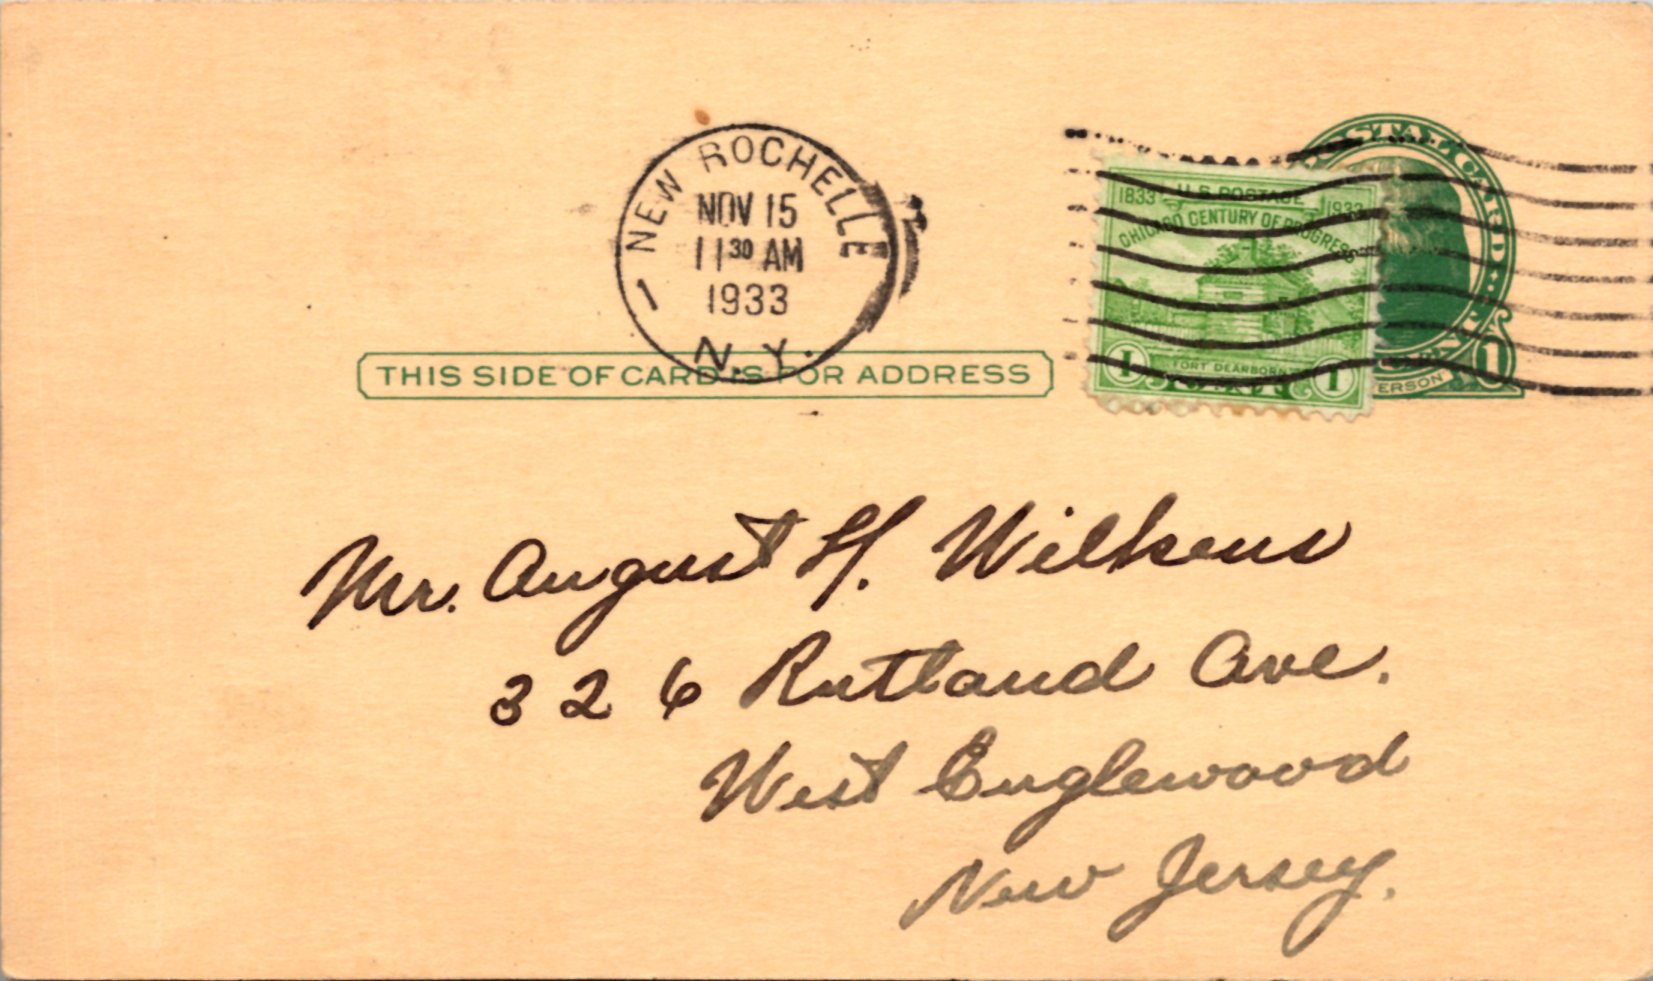 NEW ROCHELLE
NOV 15
11 30 AM
1933
1
N.Y.
THIS SIDE OF CARD IS FOR ADDRESS
1833 U.S. POSTAGE 1933
CHICAGO CENTURY OF PROGRESS
FORT DEARBORN
1 1
POSTAL CARD
ERSON
1
Mr. August H. Wilkens
326 Rutland Ave.
West Englewood
New Jersey.